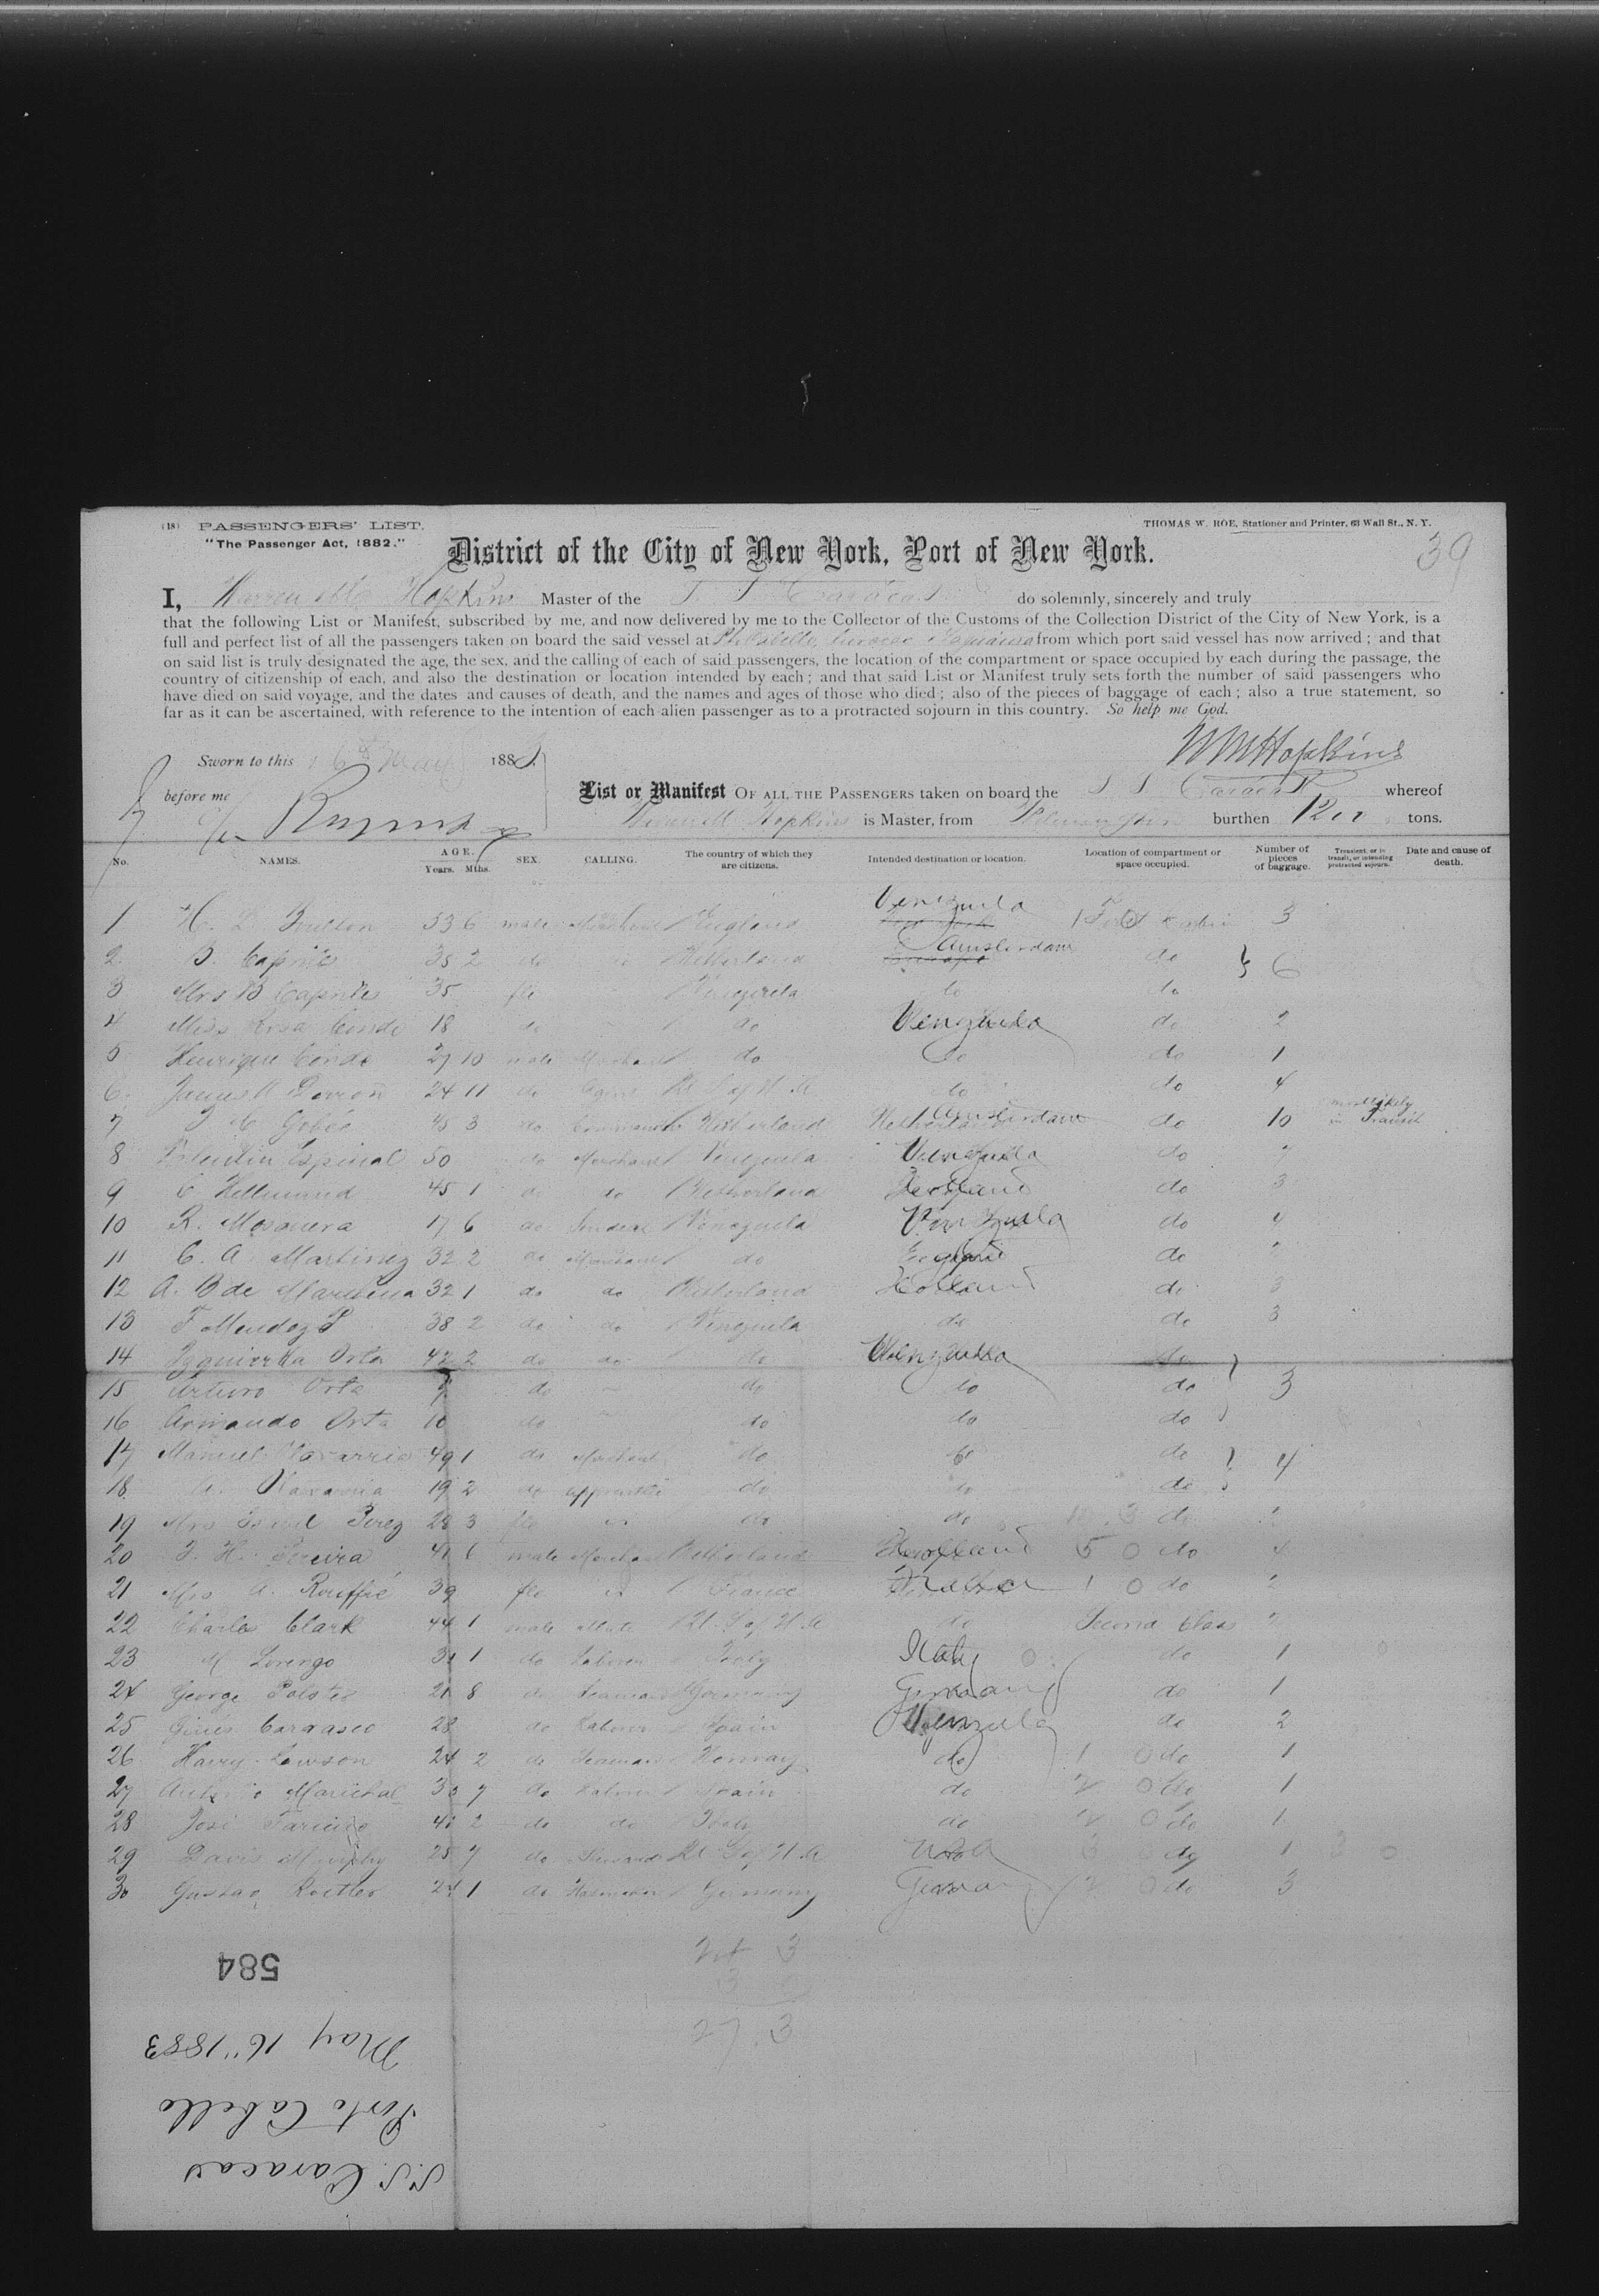 (18) PASSENGERS' LIST.
"The Passenger Act, 1882."
THOMAS W. ROE, Stationer and Printer, 63 Wall St., N. Y.
39
District of the City of New York, Port of New York.
I, Warren Hopkins Master of the S. S. Caracas do solemnly, sincerely and truly
that the following List or Manifest, subscribed by me, and now delivered by me to the Collector of the Customs of the Collection District of the City of New York, is a
full and perfect list of all the passengers taken on board the said vessel at Pto Cabello, Curacao Laguaira from which port said vessel has now arrived; and that
on said list is truly designated the age, the sex, and the calling of each of said passengers, the location of the compartment or space occupied by each during the passage, the
country of citizenship of each, and also the destination or location intended by each; and that said List or Manifest truly sets forth the number of said passengers who
have died on said voyage, and the dates and causes of death, and the names and ages of those who died; also of the pieces of baggage of each; also a true statement, so
far as it can be ascertained, with reference to the intention of each alien passenger as to a protracted sojourn in this country. So help me God.
Sworn to this 16th May 1883
before me
W M Hopkins
List or Manifest OF ALL THE PASSENGERS taken on board the S S Caracas whereof
Hopkins is Master, from Wilmington burthen 1200 tons.
No. NAMES. AGE. Years. Mths. SEX. CALLING. The country of which they are citizens. Intended destination or location. Location of compartment or space occupied. Number of pieces of baggage. Transient, or in transit, or intending protracted sojourn. Date and cause of death.
1 H. L. Boulton 53 6 male Merchant England Venezuela First Cabin 3
2 B. Capriles 35 2 do Netherland Amsterdam do 6
3 Mrs B Capriles 35 fle Venezuela do do
4 Miss Rosa Conde 18 do do Venezuela do 2
5 Henrique Conde 27 10 male Merchant do do do 1
6 James 24 11 do Agent U. S of N. A do do 4
7 Gobée 45 3 do Netherland Amsterdam do 10 most likely in Transit
8 Valentin Espinal 50 do Merchant Venezuela Venezuela do
9 C Hellmund 45 1 do do Netherland Holland do 3
10 R. Mosquera 17 6 do Student Venezuela Venezuela do 4
11 C. A. Martinez 32 2 do Merchant do England do
12 A. B de Marchena 32 1 do do Netherland Holland do 3
13 F Mendoz P 38 2 do do Venezuela do do 3
14 Izquierda Orta 42 2 do do do Venezuela do
15 Arturo Orta 7 do do do do 3
16 Armando Orta 10 do do do do
17 Manuel 49 1 do Merchant do do do 4
18 19 2 do apprentice do do do
19 Mrs Perez 28 3 fle do do do
20 J. H. Pereira 41 6 male Merchant Netherland Holland 5 0 do 4
21 Mrs A. Rouffié 39 fle France 1 0 do 2
22 Charles Clark 44 1 male Mate U. S of N. A do Second Class
23 M Lorenzo 31 1 do Laborer Italy Italy do 1
24 George Polster 21 8 do Seaman Germany Germany do 1
25 Ginés Carrasco 28 do Laborer Spain Venzuela do 2
26 Harry Lawson 24 2 do Seaman Norway do 1 0 do 1
27 Antonio Marichal 33 7 do Laborer Spain do 0 do 1
28 José 41 2 do do Italy do 0 do 1
29 David Murphy 25 7 do Seaman U. S of N. A USA do 1
30 Gustav 24 1 do Germany German 0 do 3
27 3
584
May 16" 1883
Porto Cabello
S.S. Caracas